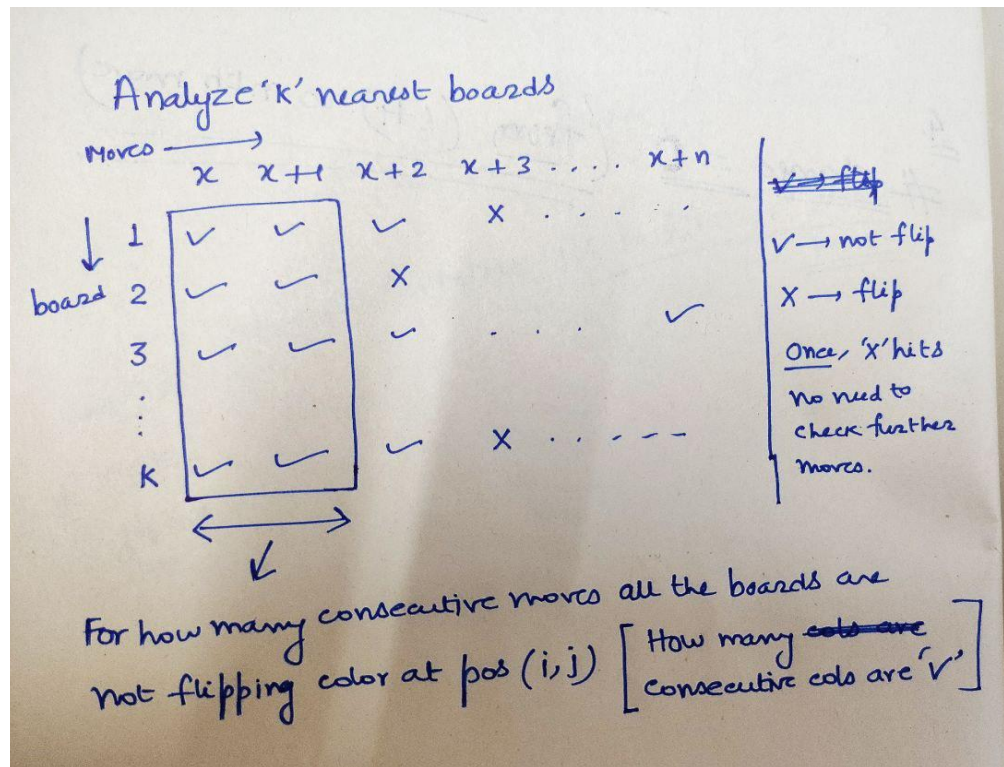 Analyze 'K' nearest boards
Moves →
x x+1 x+2 x+3 .... x+n
↓ board
1 ✓ ✓ ✓ X .....
2 ✓ ✓ X
3 ✓ ✓ ✓ .... ✓
⋮
K ✓ ✓ ✓ X .. - - - -
✓ → flip
✓ → not flip
X → flip
Once, 'X' hits
no need to
check further
moves.
For how many consecutive moves all the boards are
not flipping color at pos (i,j)
[How many cols are
consecutive cols are '✓']